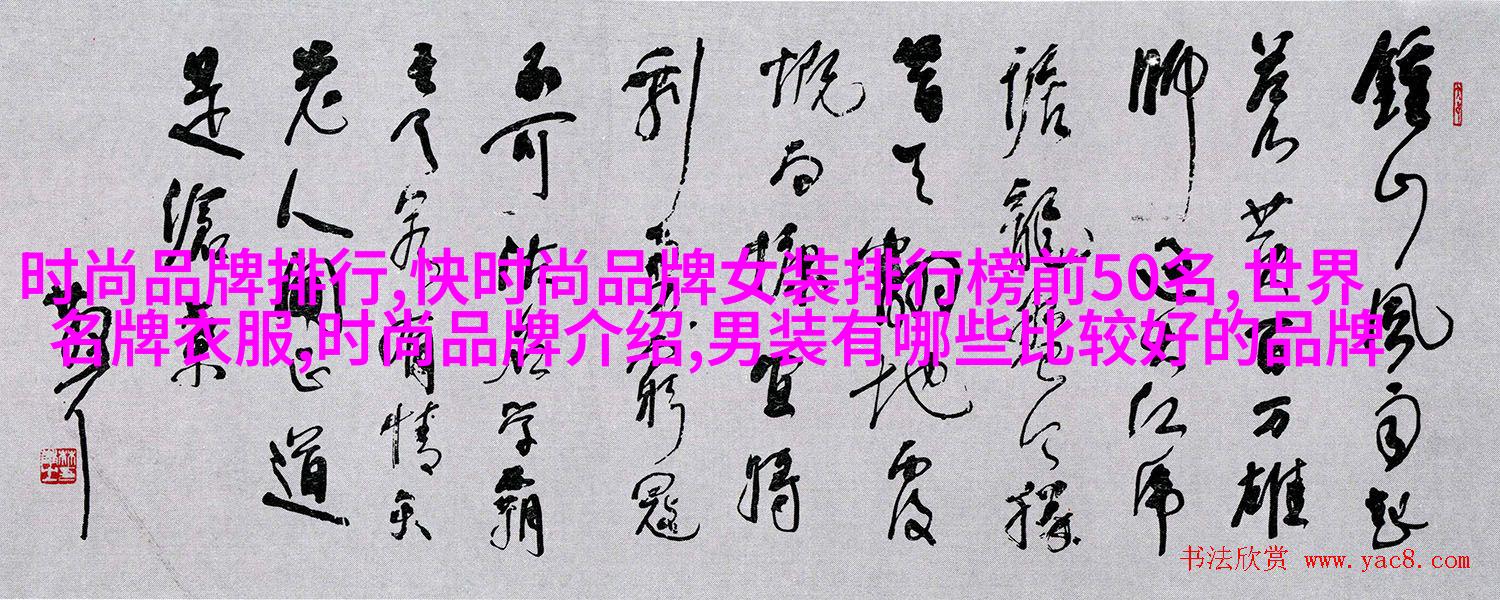 时尚品牌排行,快时尚品牌女装排行榜前50名,世界
名牌衣服,时尚品牌介绍,男装有哪些比较好的品牌
鍾山風雨起
蒼黄百万雄
師过大江虎
踞龍盤今勝
昔天翻地覆
慨而慷宜將
剩勇追窮寇
不可沽名学霸
王天若有情天亦
老人间正道
是滄桑
书法欣赏 www.yac8.com